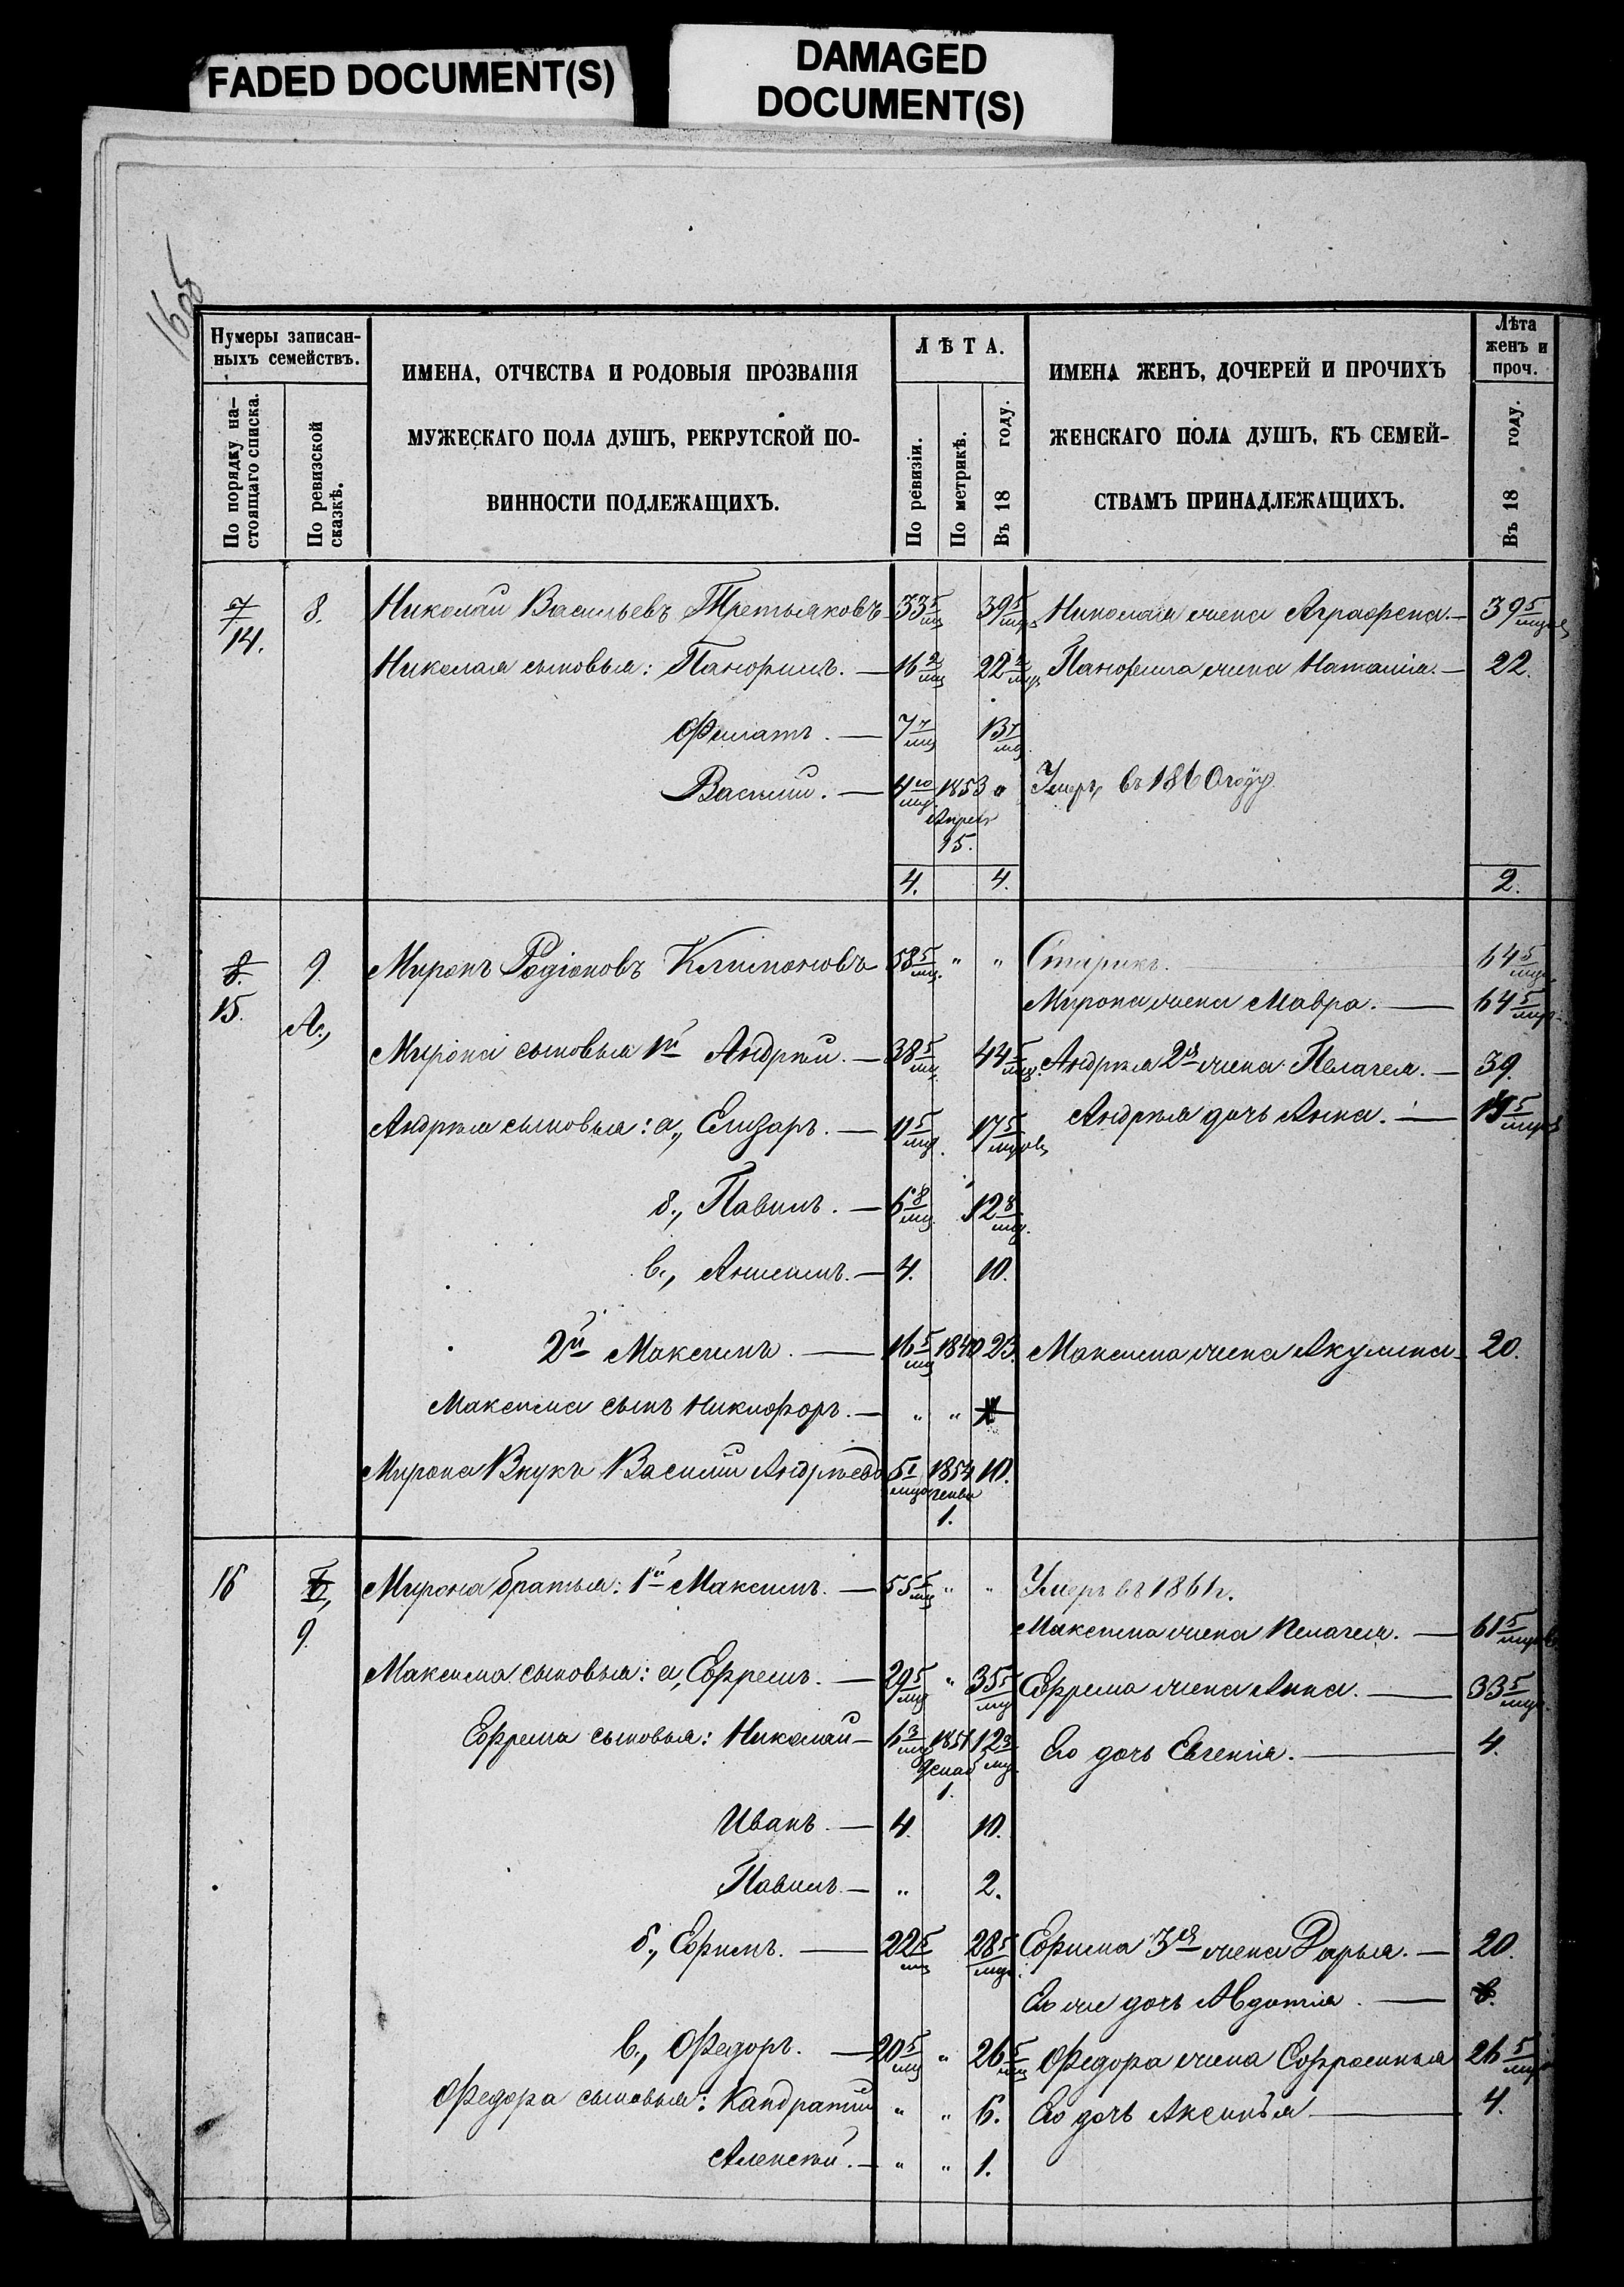 FADED DOCUMENT(S)
DAMAGED
DOCUMENT(S)
Нумеры записан-
ныхъ семействъ.
По порядку на-
стоящаго списка.
По ревизской
сказкѣ.
ИМЕНА, ОТЧЕСТВА И РОДОВЫЯ ПРОЗВАНІЯ
МУЖЕСКАГО ПОЛА ДУШЪ, РЕКРУТСКОЙ ПО-
ВИННОСТИ ПОДЛЕЖАЩИХЪ.
ЛѢТА.
По ревизіи.
По метрикѣ.
Въ 18 году.
ИМЕНА ЖЕНЪ, ДОЧЕРЕЙ И ПРОЧИХЪ
ЖЕНСКАГО ПОЛА ДУШЪ, КЪ СЕМЕЙ-
СТВАМЪ ПРИНАДЛЕЖАЩИХЪ.
Лѣта
женъ и
проч.
Въ 18 году.
7/14. 8. Николай Васильевъ Третьяковъ 33 5/мц 39 5/мцъ Николая жена Аграфена. — 39 5/мцовъ
Николая сыновья: Панфилъ. — 16 2/мц 22 2/мц Панфила жена Наталія. — 22.
Филатъ. — 7 7/мц 13 7/мц
Василій. — 4 10/мц 1853 " Умеръ въ 1860 году
Апреля
25.
4. 4. 2.
8. 9. Миронъ Родіоновъ Климоновъ 58 5/мц. " " Старикъ. 64 5/мцъ
15. А., Мирона жена Мавра. — 64 5/мцъ
Мирона сыновья 1й Андрѣй. — 38 5/мц. 44 5/мц. Андрѣя 2я жена Пелагея. — 39.
Андрѣя сыновья: а., Елизаръ. — 11 5/мц. 17 5/мцовъ Андрѣя дочь Анна. — 15 5/мцовъ
б., Павилъ. — 6 8/мц 12 8/мц.
в., Анисимъ. — 4. 10.
2й Максимъ. — 16 5/мц 1840 23. Максима жена Акулина — 20.
Максима сынъ Никифоръ. — " "
Мирона Внукъ Василій Андрѣевъ 5 1/мцъ 1854 10.
1.
16 9. Мирона братья: 1й Максимъ. — 55 5/мц " " Умеръ въ 1861 г.
Максима жена Пелагея. — 61 5/мцовъ
Максима сыновья: а, Ефремъ. — 29 5/мц " 35 5/мц Ефрема жена Анна. — 33 5/мцъ
Ефрема сыновья: Николай — 6 3/мц 1851 12 3/мц. Его дочь Евгенія. — 4.
1.
Иванъ. — 4. 10.
Павилъ — " 2.
б., Ефимъ. — 22 5/мц 28 5/мцъ Ефима 3я жена Дарья. — 20.
Его же дочь Авдотія. —
в., Федоръ. — 20 5/мц " 26 5/мц Федора жена Ефросинья 26 5/мцъ
Федора сыновья: Кандратій " " 6. Его дочь Аксинья — 4.
Алексѣй. — " " 1.